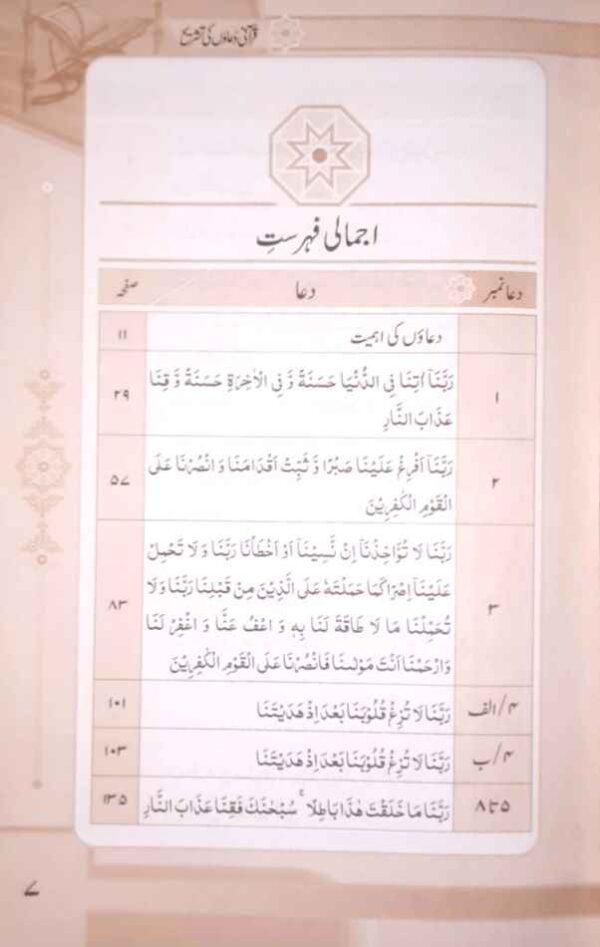 قرآنی دعاؤں کی تشریح
اجمالی فہرستِ
دعا نمبر دعا صفحہ
دعاؤں کی اہمیت ۱۱
۱ رَبَّنَاۤ اٰتِنَا فِی الدُّنْیَا حَسَنَةً وَّ فِی الْاٰخِرَةِ حَسَنَةً وَّ قِنَا ۲۹
عَذَابَ النَّارِ
۲ رَبَّنَاۤ اَفْرِغْ عَلَیْنَا صَبْرًا وَّ ثَبِّتْ اَقْدَامَنَا وَ انْصُرْنَا عَلَی ۵۷
الْقَوْمِ الْکٰفِرِیْنَ
۳ رَبَّنَا لَا تُؤَاخِذْنَاۤ اِنْ نَّسِیْنَاۤ اَوْ اَخْطَاْنَا رَبَّنَا وَ لَا تَحْمِلْ ۸۳
عَلَیْنَاۤ اِصْرًا کَمَا حَمَلْتَهٗ عَلَی الَّذِیْنَ مِنْ قَبْلِنَا رَبَّنَا وَ لَا
تُحَمِّلْنَا مَا لَا طَاقَةَ لَنَا بِهٖ وَ اعْفُ عَنَّا وَ اغْفِرْ لَنَا
وَ ارْحَمْنَا اَنْتَ مَوْلٰىنَا فَانْصُرْنَا عَلَی الْقَوْمِ الْکٰفِرِیْنَ
۴/الف رَبَّنَا لَا تُزِغْ قُلُوْبَنَا بَعْدَ اِذْ هَدَیْتَنَا ۱۰۱
۴/ب رَبَّنَا لَا تُزِغْ قُلُوْبَنَا بَعْدَ اِذْ هَدَیْتَنَا ۱۰۳
۵تا۸ رَبَّنَا مَا خَلَقْتَ هٰذَا بَاطِلًا ۚ سُبْحٰنَكَ فَقِنَا عَذَابَ النَّارِ ۱۳۵
۷